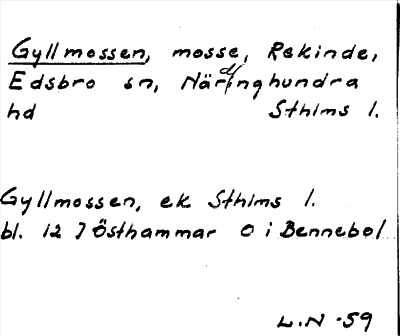 Gyllmossen, mosse, Rekinde,
Edsbro sn, Närdinghundra
hd Sthlms l.
Gyllmossen, ek Sthlms l.
bl. 12 J Östhammar O i Bennebol
L.N -59